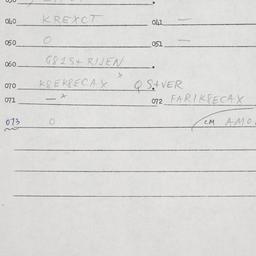 040 KREXCT 041 —
050 0 051 —
060 G81S+ RIJEN
070 K8EK8ECAX QS+VER
071 — x 072 FARIK8ECAX
073 0 CM AMO